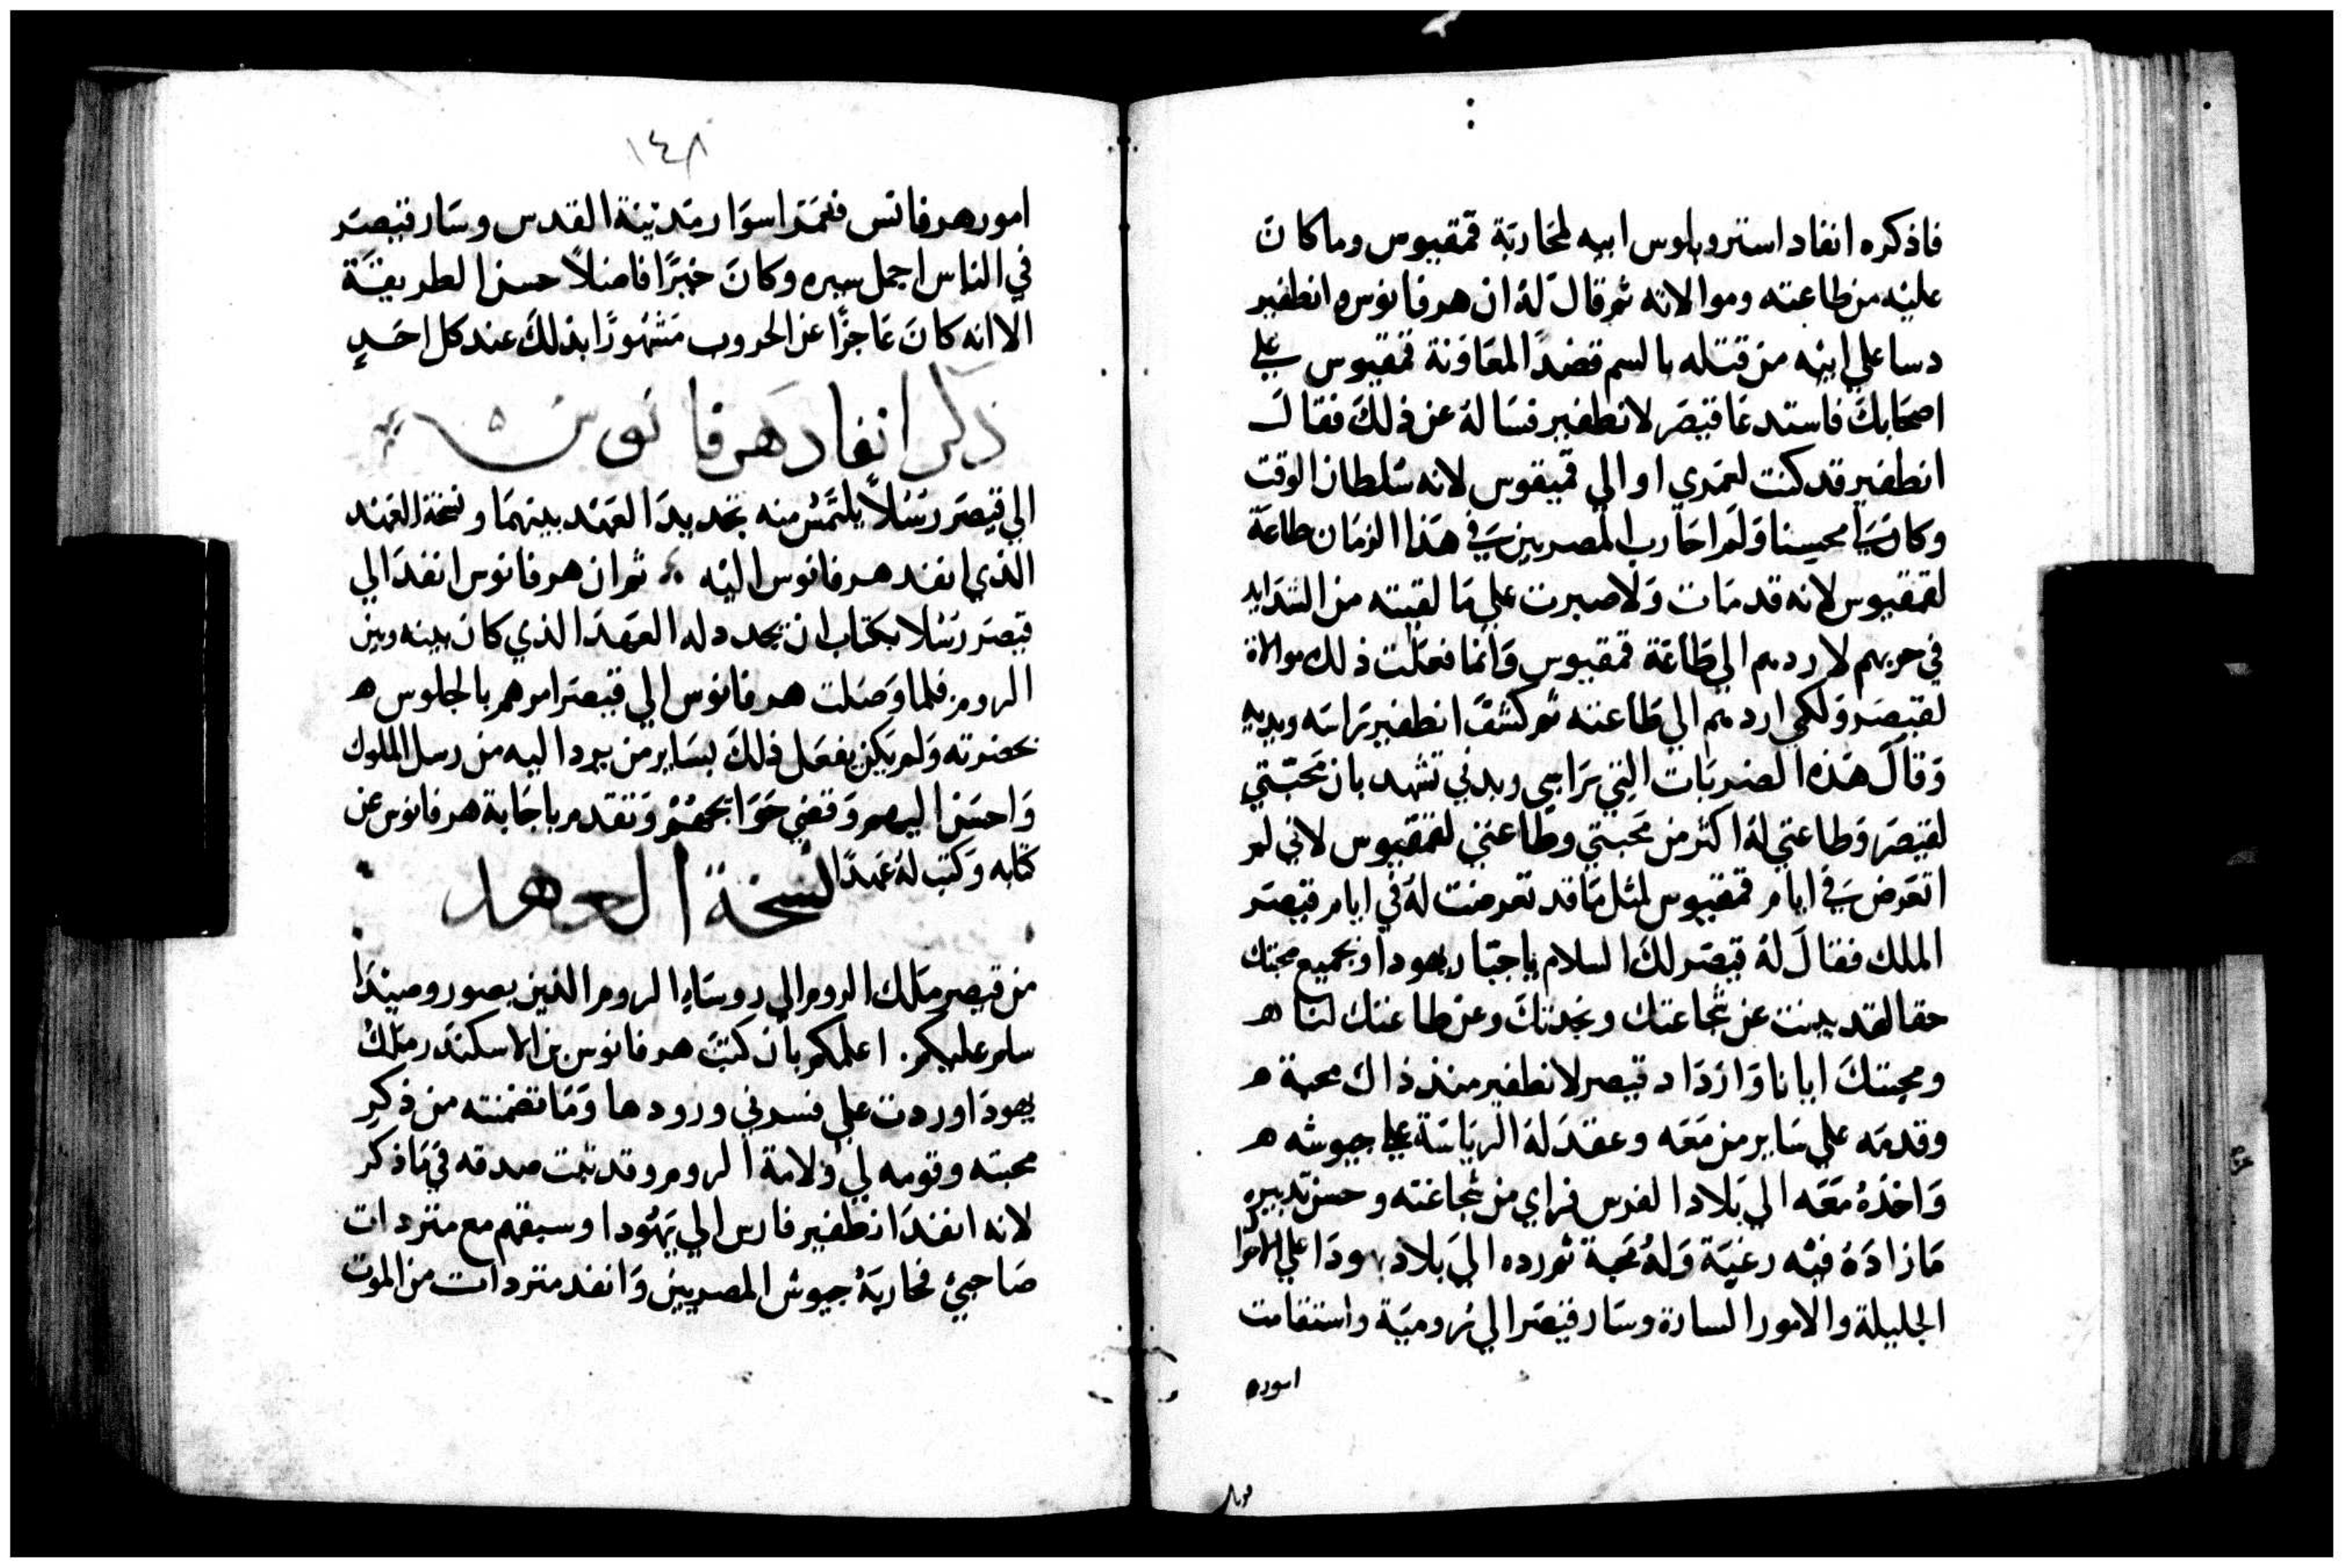 فاذكره انفاد استروبلوس ابيه لمحاربة قمقيوس وما كان
عليه من طاعته وموالاته ثم قال له ان هرفانوس وانطفير
دسا علي ابيه من قتله بالسم قصدًا لمعاونة قمقيوس علي
اصحابك فاستدعا قيصر لانطفير فساله عن ذلك فقال
انطفير قد كنت لعمري اوالي قمقيوس لانه سلطان الوقت
وكان محسنا ولم احارب المصريين في هذا الزمان طاعة
لقمقيوس لانه قد مات ولا صبرت علي ما لقيته من الشدايد
في حربهم لاردهم الي طاعة قمقيوس وانما فعلت ذلك موالاة
لقيصر ولكي اردهم الي طاعته ثم كشف انطفير راسه ويديه
وقال هذه الضربات التي براسي وبدني تشهد بان محبتي
لقيصر وطاعتي له اكثر من محبتي وطاعتي لقمقيوس لاني لم
اتعرض في ايام قمقيوس لمثل ما قد تعرضت له في ايام قيصر
الملك فقال له قيصر لك السلام يا جبار يهودا وبجميع محبتك
حقا لقد بينت عن شجاعتك ونجدتك وعن طاعتك لنا ه
ومحبتك ايانا وازداد قيصر لانطفير منذ ذاك محبة ه
وقدمه علي ساير من معه وعقد له الرياسة علي جيوشه ه
واخذه معه الي بلاد الفرس فراي من شجاعته وحسن تدبيره
ما زاده فيه رغبة وله محبة ثم رده الي بلاد يهودا علي الاحوال
الجليلة والامور السارة وسار قيصر الي رومية واستقامت
اموره
١٤٨
امور هرفانس فعمر اسوار مدينة القدس وسار قيصر
في الناس اجمل سيره وكان خيرًا فاضلاً حسن الطريقة
الا انه كان عاجزًا عن الحروب مشهورًا بذلك عند كل احدٍ
ذكر انفاد هرفانوس
الي قيصر رسلاً يلتمس منه تجديد العهد بينهما ونسخة العهد
الذي انفذ هرفانوس اليه ثم ان هرفانوس انفذ الي
قيصر رسلا بكتاب ان يجدد له العهد الذي كان بينه وبين
الروم فلما وصلت هرفانوس الي قيصر امرهم بالجلوس ه
بحضرته ولم يكن يفعل ذلك لساير من يرد اليه من رسل الملوك
واحسن اليهم وقضي حوايجهم وتقدم باجابة هرفانوس عن
كتابه وكتب له عهدًا
نسخة العهد
من قيصر ملك الروم الي روساء الروم الذين بصور وصيدا
سلم عليكم . اعلمكم بان كتب هرفانوس بن الاسكندر ملك
يهودا وردت علي فسرني ورودها وما تضمنته من ذكر
محبته وقومه لي ولامة الروم وقد تبت صدقه في ما ذكر
لانه انفذ انطفير فارس الي يهودا وسبقهم مع متردات
صاحبي لمحاربة جيوش المصريين وانفذ متردات من الموت